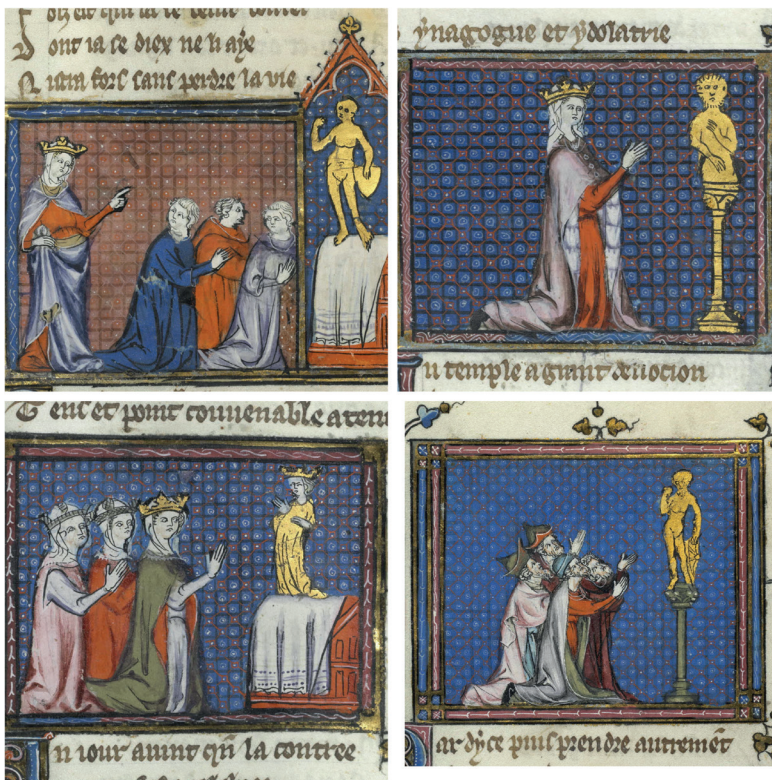 D ont ia se diex ne li aÿe
istra fors sans perdre la vie
ÿnagogue et ÿdolatrie
u temple a grant deuocion
G ens et point couuenable a
n iour auint qñ la contree
ar dÿce puis prendre autremēt